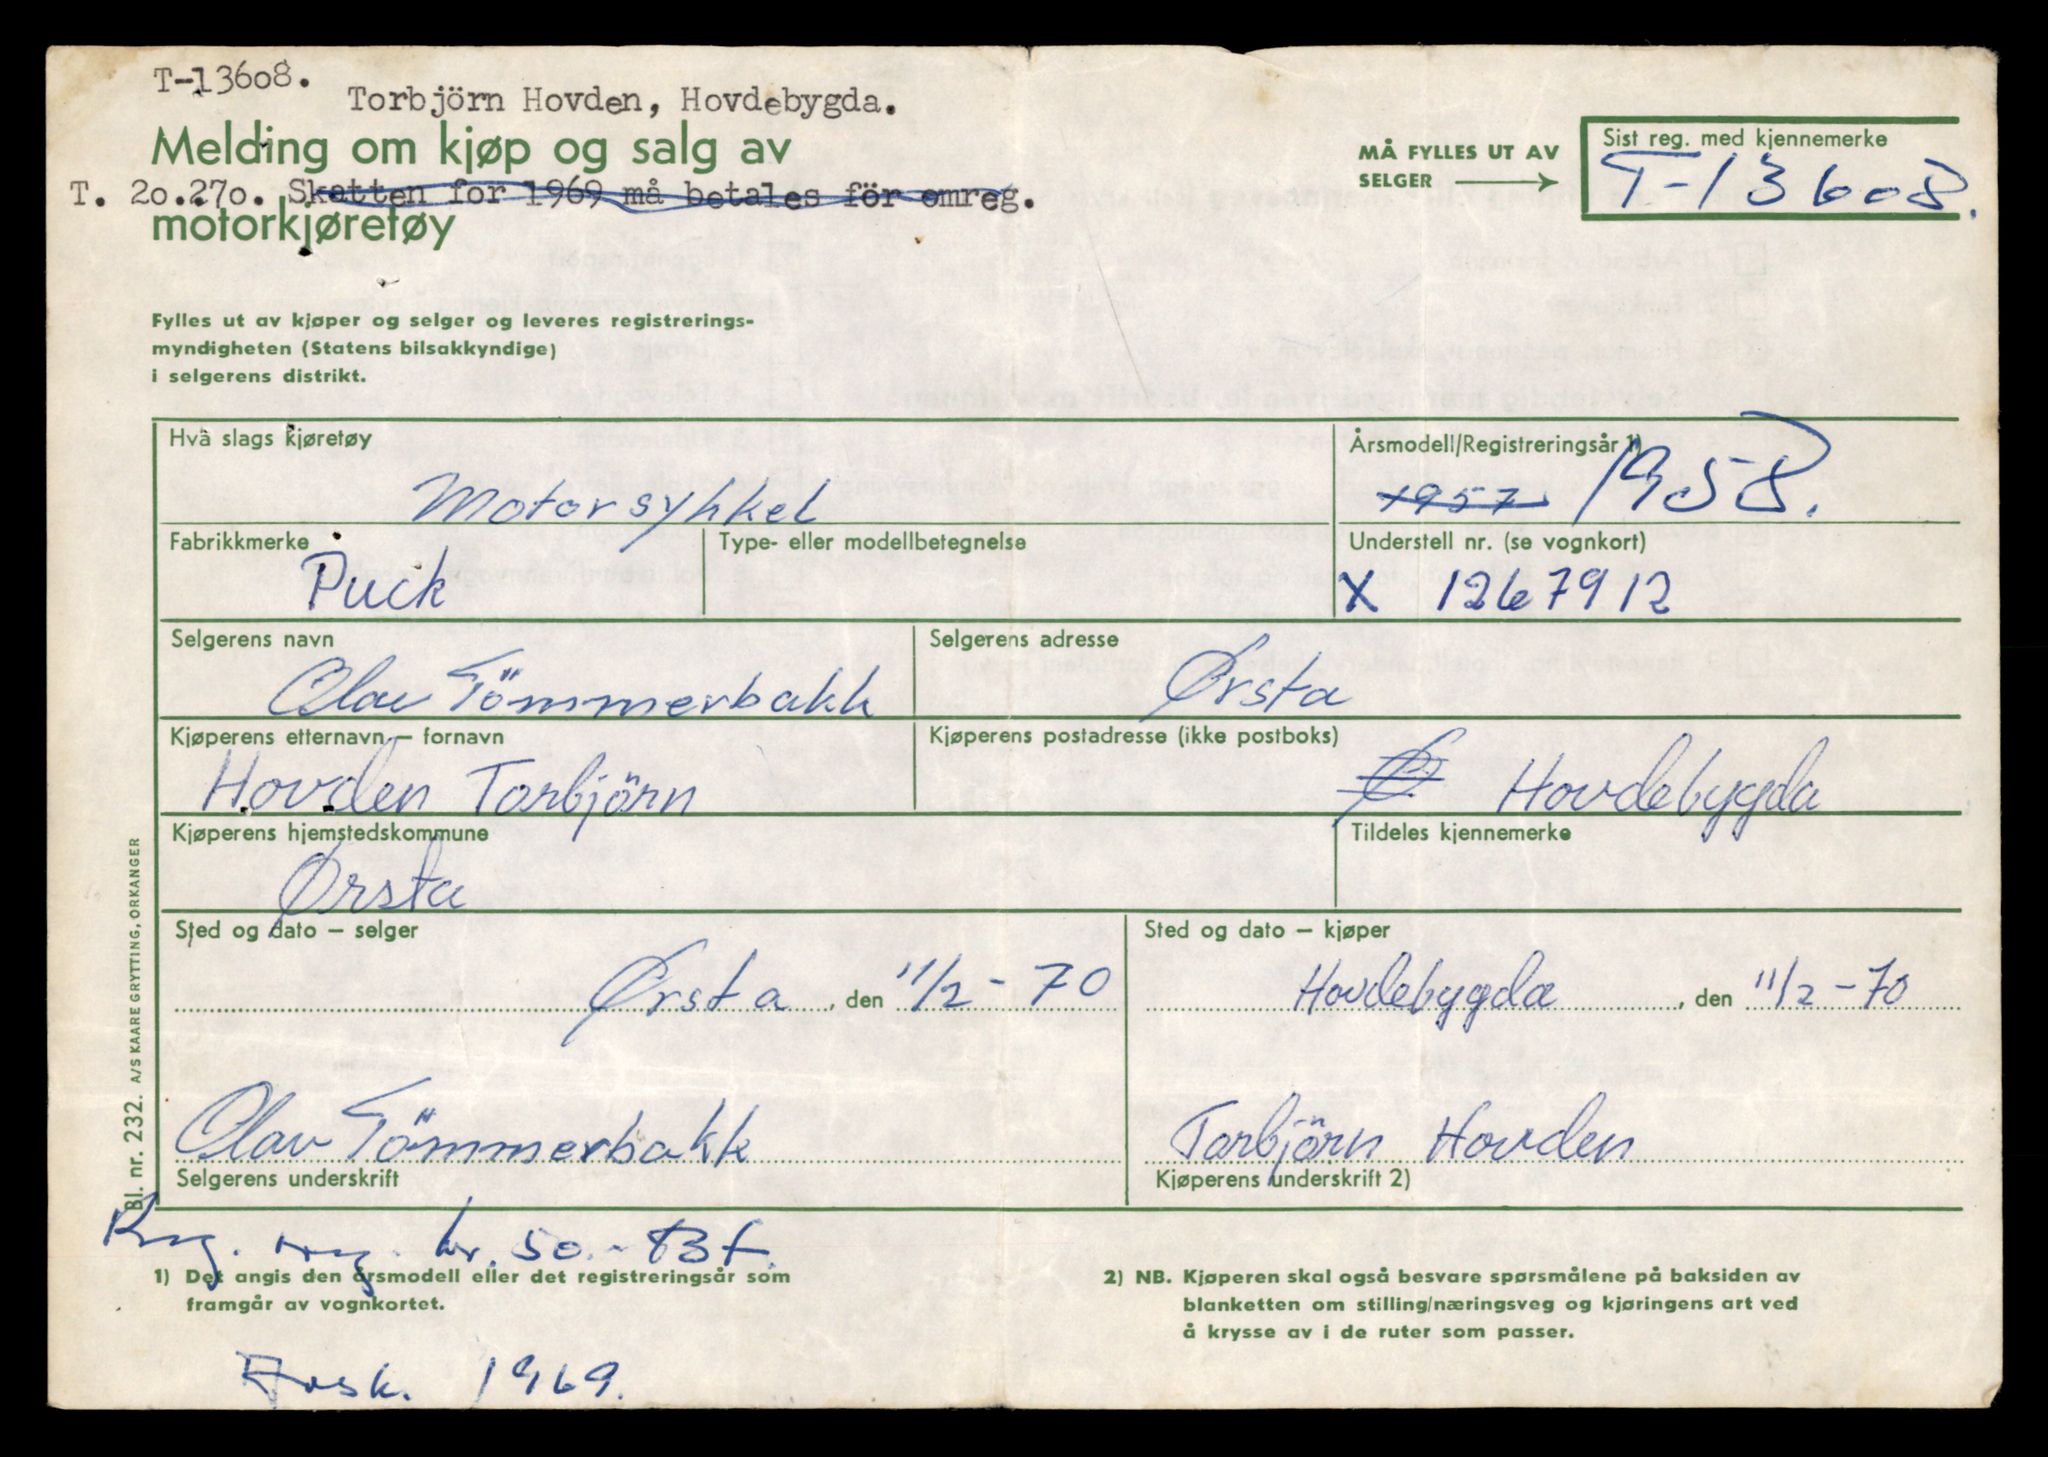 T-13608.
Torbjörn Hovden, Hovdebygda.
Melding om kjøp og salg av
T. 20.270. Skatten for 1969 må betales för omreg.
motorkjøretøy
MÅ FYLLES UT AV
SELGER
Sist reg. med kjennemerke
T-13608.
Fylles ut av kjøper og selger og leveres registrerings-
myndigheten (Statens bilsakkyndige)
i selgerens distrikt.
Hva slags kjøretøy
Motorsykkel
Årsmodell/Registreringsår 1)
1957 1958.
Fabrikkmerke
Puck
Type- eller modellbetegnelse
Understell nr. (se vognkort)
X 1267912
Selgerens navn
Olav Tömmerbakk
Selgerens adresse
Ørsta
Kjøperens etternavn – fornavn
Hovden Torbjörn
Kjøperens postadresse (ikke postboks)
Hovdebygda
Kjøperens hjemstedskommune
Ørsta
Tildeles kjennemerke
Sted og dato – selger
Ørsta, den 11/2-70
Sted og dato – kjøper
Hovdebygda, den 11/2-70
Olav Tömmerbakk
Selgerens underskrift
Torbjörn Hovden
Kjøperens underskrift 2)
Bl. nr. 232. A/S KAARE GRYTTING, ORKANGER
kr. 50.-
1) Det angis den årsmodell eller det registreringsår som
framgår av vognkortet.
2) NB. Kjøperen skal også besvare spørsmålene på baksiden av
blanketten om stilling/næringsveg og kjøringens art ved
å krysse av i de ruter som passer.
1969.